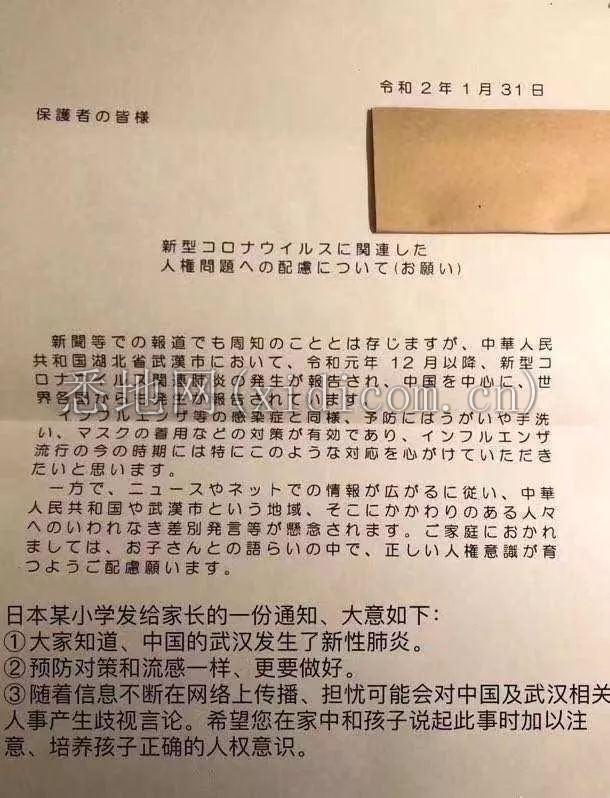 令和2年1月31日
保護者の皆様
新型コロナウイルスに関連した
人権問題への配慮について(お願い)
新聞等での報道でも周知のこととは存じますが、中華人民
共和国湖北省武漢市において、令和元年12月以降、新型コ
ロナウイルス関連肺炎の発生が報告され、中国を中心に、世
界各国からも発生が報告されています。
インフルエンザ等の感染症と同様、予防にはうがいや手洗
い、マスクの着用などの対策が有効であり、インフルエンザ
流行の今の時期には特にこのような対応を心がけていただき
たいと思います。
一方で、ニュースやネットでの情報が広がるに従い、中華
人民共和国や武漢市という地域、そこにかかわりのある人々
へのいわれなき差別発言等が懸念されます。ご家庭におかれ
ましては、お子さんとの語らいの中で、正しい人権意識が育
つようご配慮願います。
悉地网(xidicon.cn)
日本某小学发给家长的一份通知、大意如下：
①大家知道、中国的武汉发生了新性肺炎。
②预防对策和流感一样、更要做好。
③随着信息不断在网络上传播、担忧可能会对中国及武汉相关
人事产生歧视言论。希望您在家中和孩子说起此事时加以注
意、培养孩子正确的人权意识。